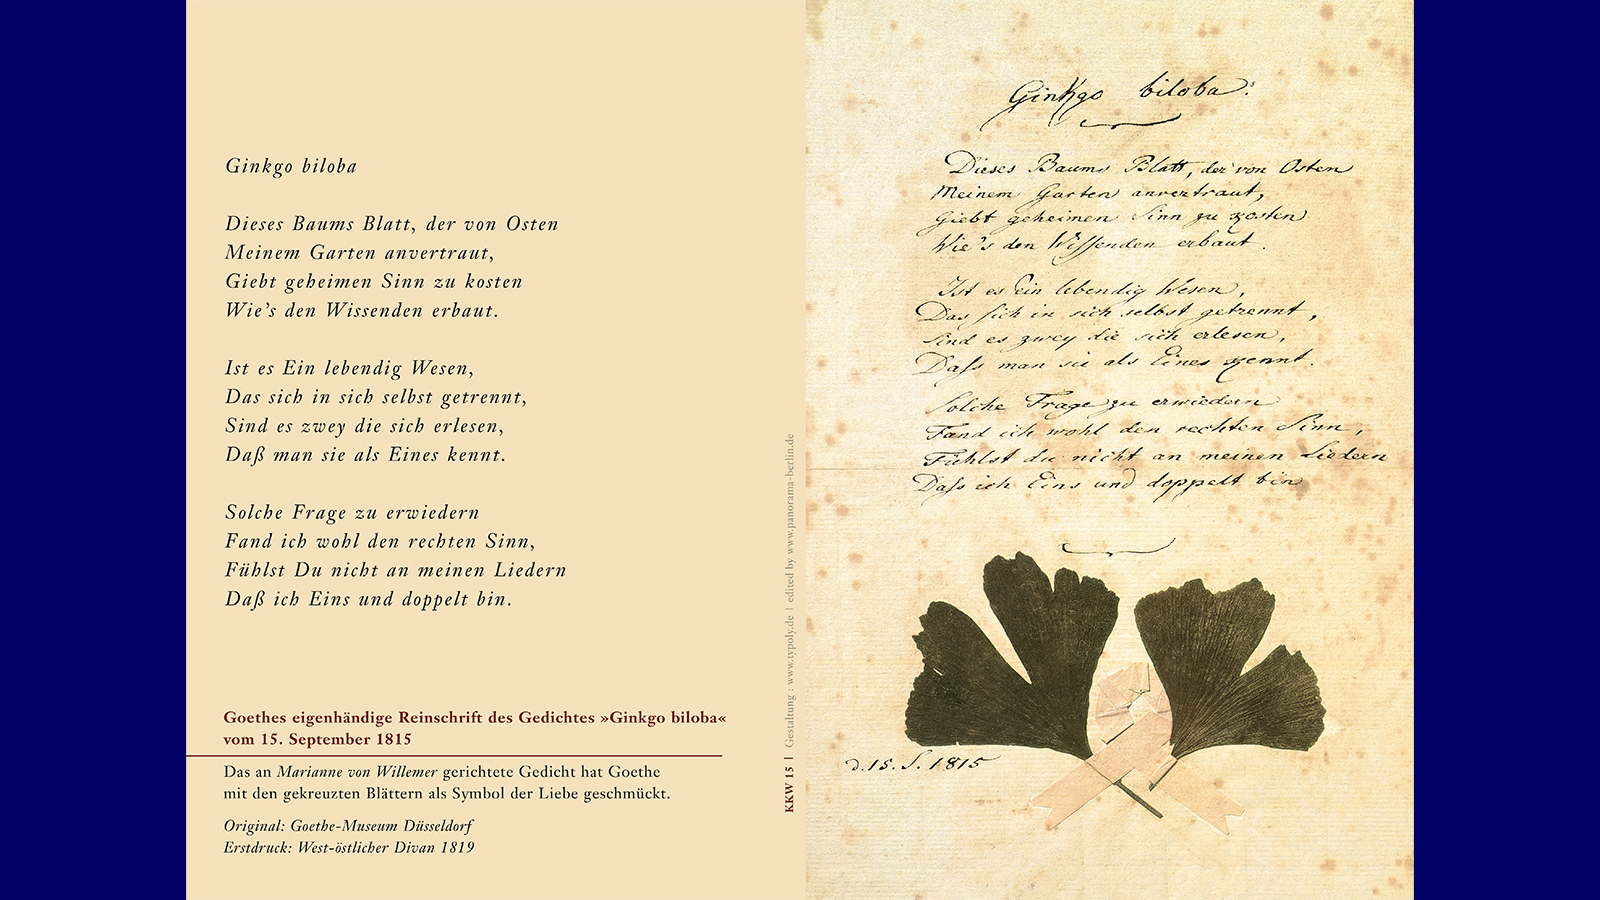 Ginkgo biloba
Dieses Baums Blatt, der von Osten
Meinem Garten anvertraut,
Giebt geheimen Sinn zu kosten
Wie’s den Wissenden erbaut.
Ist es Ein lebendig Wesen,
Das sich in sich selbst getrennt,
Sind es zwey die sich erlesen,
Daß man sie als Eines kennt.
Solche Frage zu erwiedern
Fand ich wohl den rechten Sinn,
Fühlst Du nicht an meinen Liedern
Daß ich Eins und doppelt bin.
Goethes eigenhändige Reinschrift des Gedichtes »Ginkgo biloba«
vom 15. September 1815
Das an Marianne von Willemer gerichtete Gedicht hat Goethe
mit den gekreuzten Blättern als Symbol der Liebe geschmückt.
Original: Goethe-Museum Düsseldorf
Erstdruck: West-östlicher Divan 1819
KKW 15 | Gestaltung : www.typoly.de | edited by www.panorama-berlin.de
Ginkgo biloba
Dieses Baums Blatt, der von Osten
Meinem Garten anvertraut,
Giebt geheimen Sinn zu kosten
Wie's den Wissenden erbaut.
Ist es Ein lebendig Wesen,
Das sich in sich selbst getrennt,
Sind es zwey die sich erlesen,
Dass man sie als Eines kennt.
Solche Frage zu erwiedern
Fand ich wohl den rechten Sinn,
Fühlst du nicht an meinen Liedern
Dass ich Eins und doppelt bin
d. 15. S. 1815